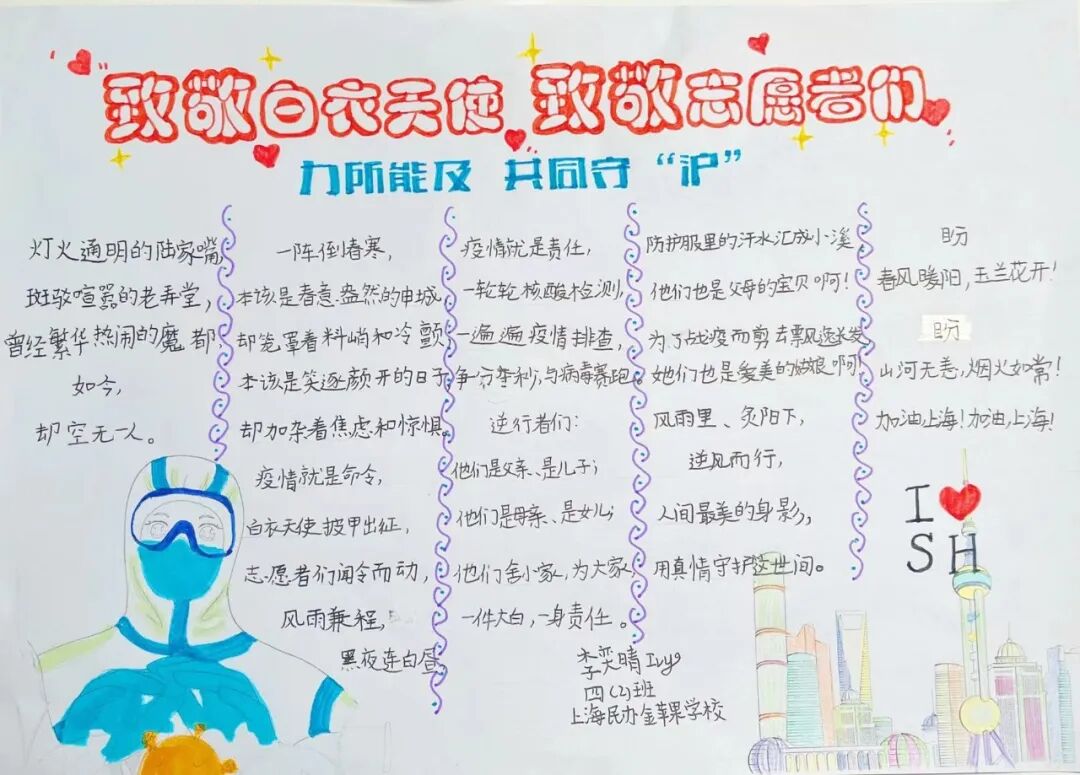 “致敬白衣天使 致敬志愿者们”
力所能及 共同守“沪”
灯火通明的陆家嘴,
斑驳喧嚣的老弄堂,
曾经繁华热闹的魔都,
如今,
却空无一人。
一阵倒春寒,
本该是春意盎然的申城,
却笼罩着料峭和冷颤,
本该是笑逐颜开的日子,
却加杂着焦虑和惊惧。
疫情就是命令,
白衣天使披甲出征,
志愿者们闻令而动,
风雨兼程,
黑夜连白昼
疫情就是责任,
一轮轮核酸检测,
一遍遍疫情排查,
争分夺秒,与病毒赛跑。
逆行者们:
他们是父亲、是儿子;
他们是母亲、是女儿;
他们舍小家,为大家,
一件大白,一身责任。
防护服里的汗水汇成小溪,
他们也是父母的宝贝啊!
为了战疫而剪去飘逸长发,
她们也是爱美的姑娘啊!
风雨里、炙阳下,
逆风而行,
人间最美的身影,
用真情守护这世间。
盼
春风暖阳,玉兰花开!
盼
山河无恙,烟火如常!
加油上海!加油上海!
I
SH
李奕晴Ivy
四(2)班
上海民办金苹果学校